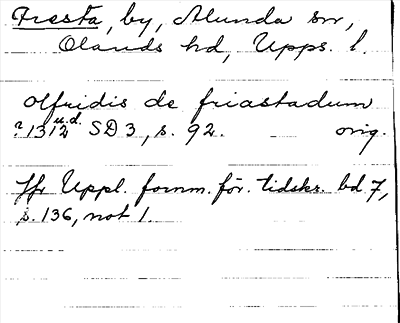 Fresta, by, Alunda sn,
Olands hd, Upps. l.
Olfridis de friastadum
? 1312 u.d. SD 3, s. 92. orig.
Jfr Uppl. fornm. för. tidskr. bd 7,
s. 136, not 1.